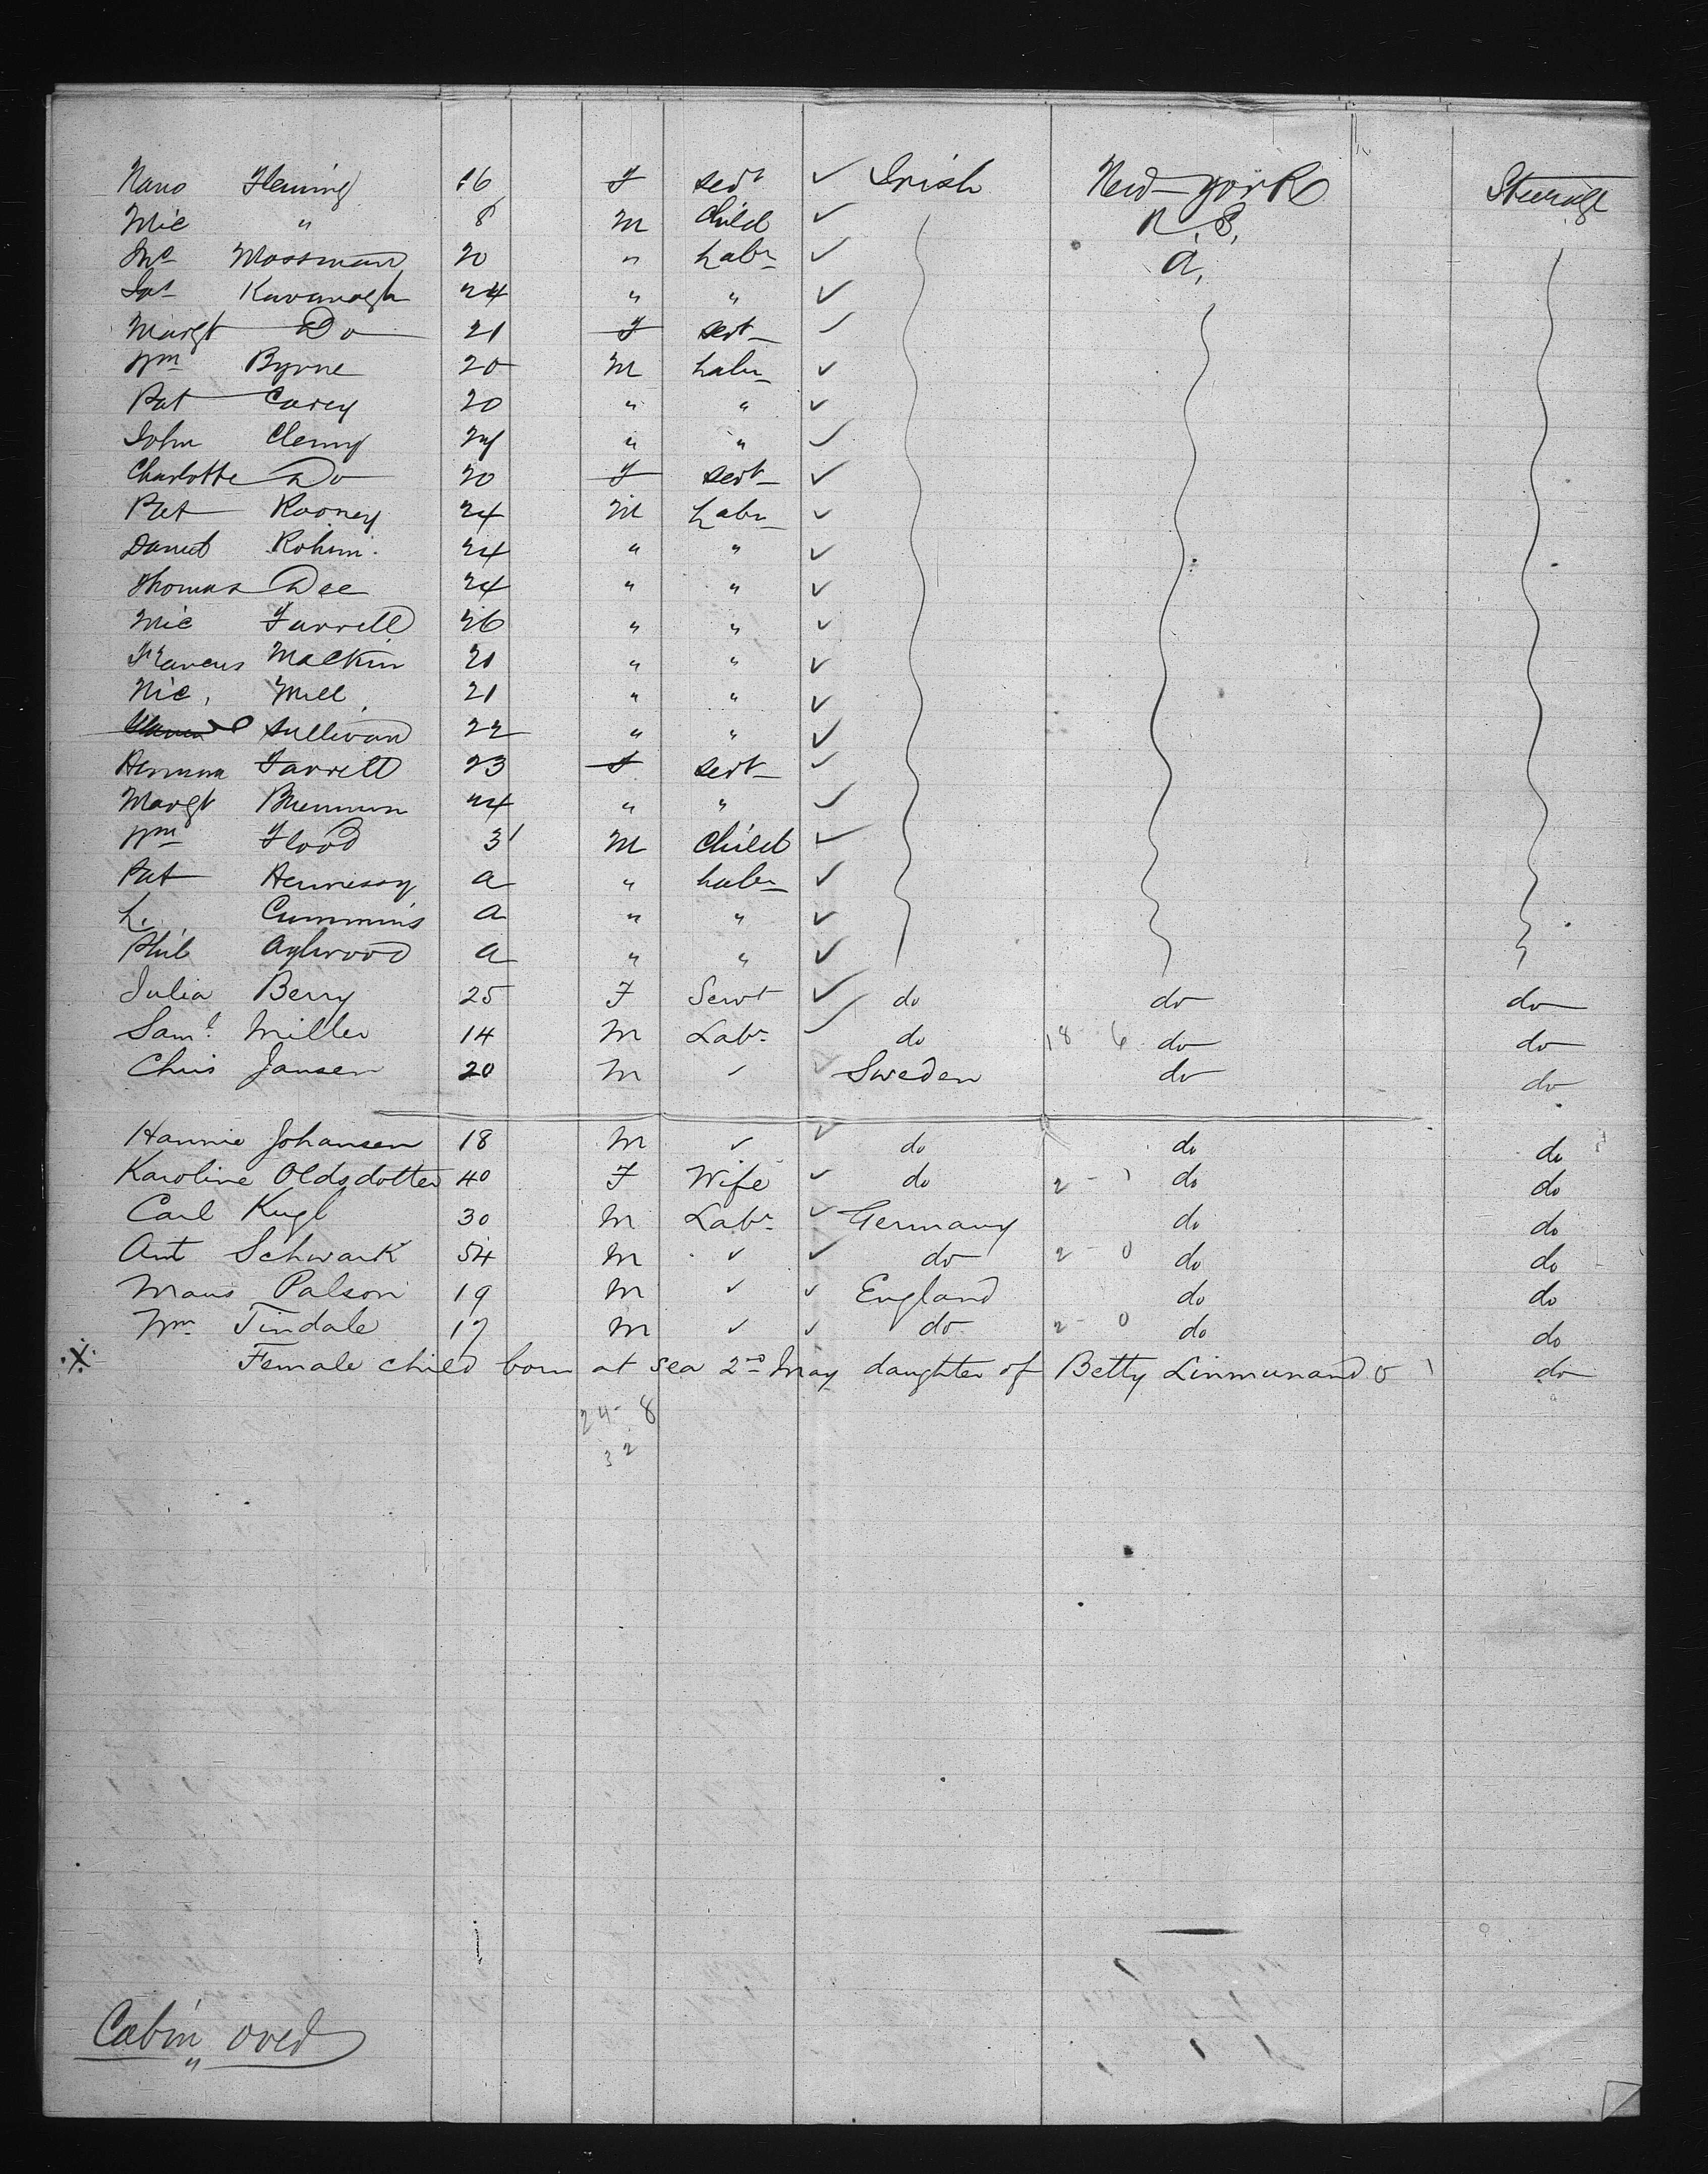 Nano Fleming 16 F servt ✓ Irish New-York Steerage
Mic " 8 M Child ✓ U.S.
Jno Mossman 20 " Labr ✓ A.
Jas Kavanagh 24 " " ✓
Margt Do 21 F servt ✓
Wm Byrne 20 M Labr ✓
Pat Carey 20 " " ✓
John Clenny 24 " " ✓
Charlotte Do 20 F servt ✓
Pat Rooney 24 M Labr ✓
Daniel 24 " " ✓
Thomas Dee 24 " " ✓
Mic Farrell 26 " " ✓
Francis Mackin 21 " " ✓
Nic, 21 " " ✓
Sullivan 22 " " ✓
Farrell 23 F servt ✓
Margt Brennan 24 " " ✓
Wm Flood 3 M Child ✓
Pat Hennessy a " Labr ✓
L. Cummins a " " ✓
Phil Aylwood a " " ✓
Julia Berry 25 F Servt ✓ do do do
Saml Miller 14 M Labr ✓ do 18 6 do do
Chris Jansen 20 M ✓ ✓ Sweden do do
Hannie Johansen 18 M ✓ ✓ do do do
Karoline Oldsdotter 40 F Wife ✓ do 2 - 1 do do
Carl Kugl 30 M Labr ✓ Germany do do
Ant Schwark 54 M ✓ ✓ do 2 - 0 do do
Maus Palson 19 M ✓ ✓ England do do
Wm Tindale 17 M ✓ ✓ do 2 - 0 do do
X Female child born at sea 2nd May daughter of Betty Linmunand 0 1 do
24 - 8
32
Cabin over